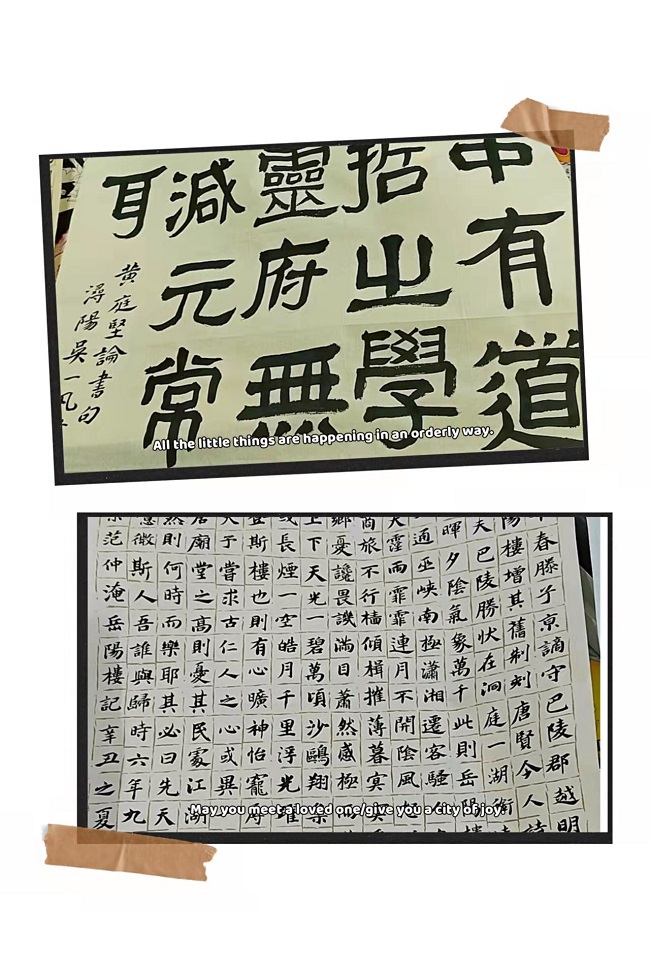 中有道
哲之學
靈府無
減元常
耳
黃庭堅論書句
潯陽吳一凡
All the little things are happening in an orderly way.
春滕子京謫守巴陵郡越明
陽樓增其舊制刻唐賢今人詩
夫巴陵勝狀在洞庭一湖銜
暉夕陰氣象萬千此則岳陽樓
通巫峽南極瀟湘遷客騷
霪雨霏霏連月不開陰風
商旅不行檣傾楫摧薄暮冥
鄉憂讒畏譏滿目蕭然感極
上下天光一碧萬頃沙鷗翔集
或長煙一空皓月千里浮光躍
登斯樓也則有心曠神怡寵辱
予嘗求古仁人之心或異
居廟堂之高則憂其民處江湖
然則何時而樂耶其必曰先天
噫微斯人吾誰與歸時六年九
范仲淹岳陽樓記辛丑之夏
May you meet a loved one/give you a city of joy.